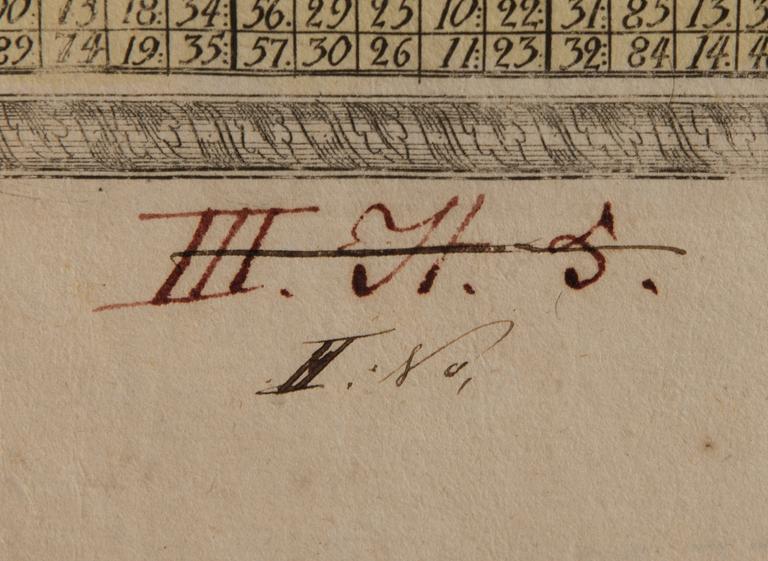 13 18: 34: 56. 29 25 10: 22: 31: 85 13.
89 74 19: 35: 57. 30 26 11: 23: 32: 84 14.
III. H. 5.
II. No,